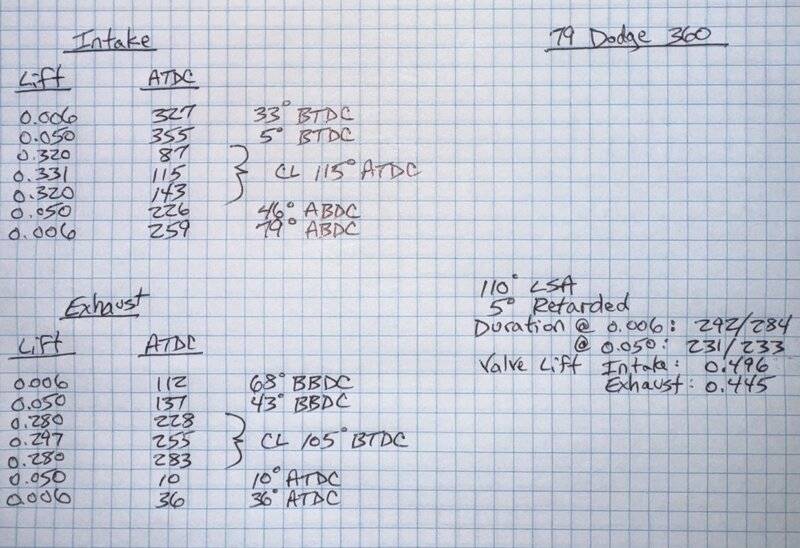 Intake
79 Dodge 360
Lift ATDC
0.006 327 33° BTDC
0.050 355 5° BTDC
0.320 87
0.331 115 } CL 115° ATDC
0.320 143
0.050 226 46° ABDC
0.006 259 79° ABDC
Exhaust
Lift ATDC
0.006 112 68° BBDC
0.050 137 43° BBDC
0.280 228
0.297 255 } CL 105° BTDC
0.280 283
0.050 10 10° ATDC
0.006 36 36° ATDC
110° LSA
5° Retarded
Duration @ 0.006: 292/284
@ 0.050: 231/233
Valve Lift Intake: 0.496
Exhaust: 0.445